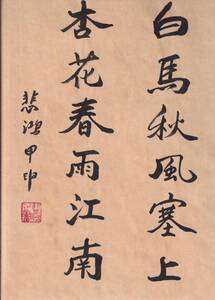 白馬秋風塞上
杏花春雨江南
悲鴻甲申